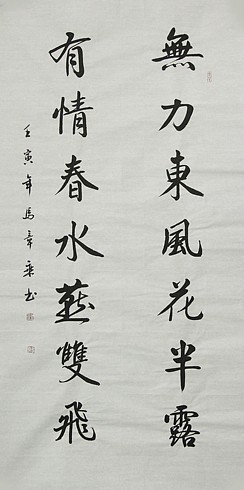 無力東風花半露
有情春水燕雙飛
壬寅年馬章乘書